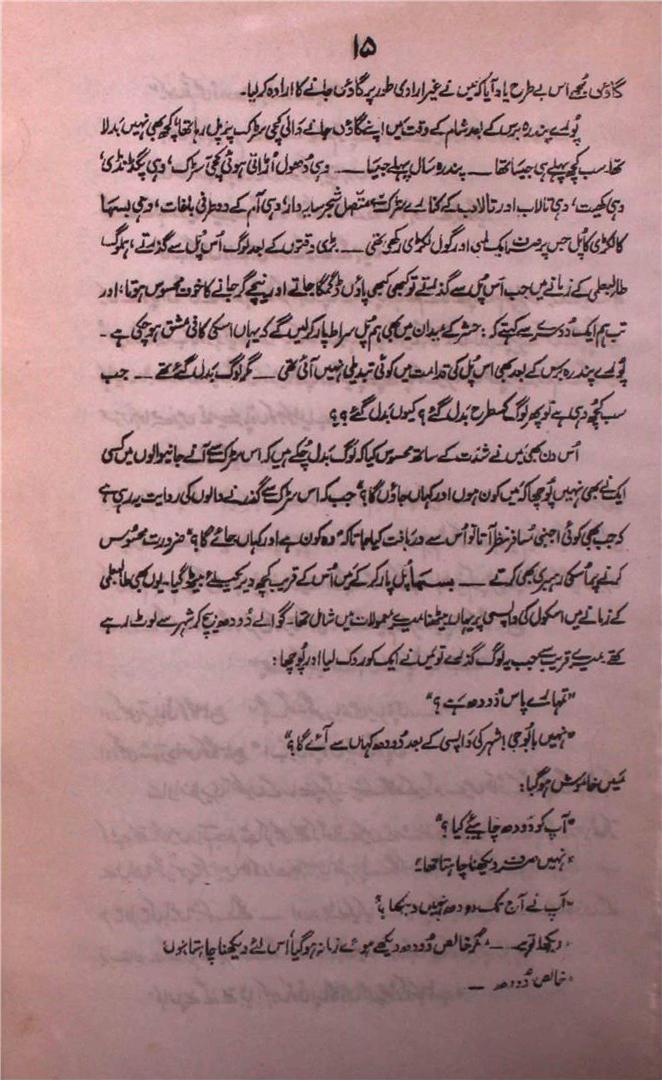 ۱۵
گاؤں مجھے اس بے طرح یاد آیا کہ میں نے غیر ارادی طور پر گاؤں جانے کا ارادہ کر لیا۔
پورے پندرہ برس کے بعد شام کے وقت میں اپنے گاؤں جانے والی کچی سڑک پر چل رہا تھا، کچھ بھی نہیں بدلا
تھا۔ سب کچھ پہلے ہی جیسا تھا ــ پندرہ سال پہلے جیسا ــ وہی دھول اُڑاتی ہوئی کچی سڑک، وہی پگڈنڈی،
وہی کھیت، وہی تالاب اور تالاب کے کنارے سڑک سے متصل شجر سایہ دار، وہی آم کے دو طرفی باغات، وہی بسہا
کا لکڑی کا پُل جس پر صرف ایک لمبی اور گول لکڑی رکھی تھی ــ بڑی دقتوں کے بعد لوگ اُس پُل سے گذرتے، ہملوگ
طالبعلمی کے زمانے میں جب اُس پُل سے گذرتے تو کبھی کبھی پاؤں ڈگمگا جاتے اور نیچے گر جانے کا خوف محسوس ہوتا، اور
تب ہم ایک دوسرے سے کہتے کہ: حشر کے میدان میں بھی ہم پُل سراط پار کر لیں گے کہ یہاں اسکی کافی مشق ہو چکی ہے۔
پورے پندرہ برس کے بعد بھی اس پُل کی قدامت میں کوئی تبدیلی نہیں آئی تھی ــ مگر لوگ بدل گئے تھے ــ جب
سب کچھ وہی ہے تو پھر لوگ کسطرح بدل گئے؟ کیوں بدل گئے؟؟
اُس دن بھی میں نے شدت کے ساتھ محسوس کیا کہ لوگ بدل چکے ہیں کہ اس سڑک سے آنے جانیوالوں میں کسی
ایک نے بھی نہیں پوچھا کہ میں کون ہوں اور کہاں جاؤں گا؟" جب کہ اس سڑک سے گذرنے والوں کی روایت یہ رہی ہے
کہ جب بھی کوئی اجنبی مُسافر نظر آتا تو اُس سے دریافت کیا جاتا کہ "وہ کون ہے اور کہاں جائے گا؟" ضرورت محسوس
کرنے پر اُسکی رہبری بھی کرتے ــ بسہا پُل پار کر کے میں اُس کے قریب کچھ دیر کیلئے بیٹھ گیا۔ یوں بھی طالبعلمی
کے زمانے میں اسکول کی واپسی پر یہاں بیٹھنا میرے معمولات میں شامل تھا۔ گوالے دودھ بیچ کر شہر سے لوٹ رہے
تھے میرے قریب سے جب یہ لوگ گذرے تو میں نے ایک کو روک لیا اور پوچھا:
"تمہارے پاس دُودھ ہے؟"
"نہیں بابو جی! شہر کی واپسی کے بعد دُودھ کہاں سے آئے گا؟"
میں خاموش ہو گیا:
"آپ کو دودھ چاہیئے کیا؟"
"نہیں صرف دیکھنا چاہتا تھا"
"آپ نے آج تک دودھ نہیں دیکھا؟"
"دیکھا تو ہے ــ مگر خالص دُودھ دیکھے ہوئے زمانہ ہو گیا اس لئے دیکھنا چاہتا ہوں"
"خالص دُودھ ــ